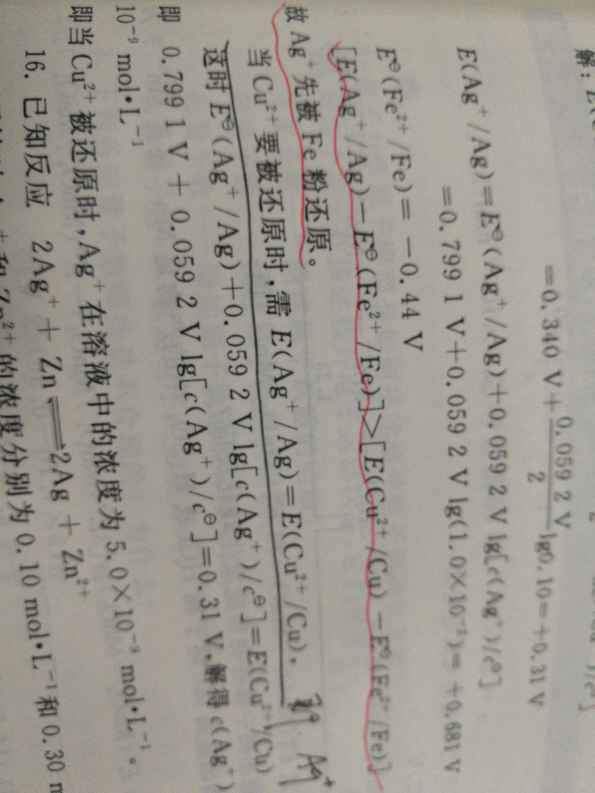 解：
=0.340 V+(0.059 2 V/2)lg0.10=+0.31 V
E(Ag⁺/Ag)=E⊖(Ag⁺/Ag)+0.059 2 V lg[c(Ag⁺)/c⊖]
=0.799 1 V+0.059 2 V lg(1.0×10⁻²)=+0.681 V
E⊖(Fe²⁺/Fe)=-0.44 V
[E(Ag⁺/Ag)-E⊖(Fe²⁺/Fe)]>[E(Cu²⁺/Cu)-E⊖(Fe²⁺/Fe)]
故 Ag⁺先被 Fe 粉还原。
当 Cu²⁺要被还原时,需 E(Ag⁺/Ag)=E(Cu²⁺/Cu),
Ag⁺
这时 E⊖(Ag⁺/Ag)+0.059 2 V lg[c(Ag⁺)/c⊖]=E(Cu²⁺/Cu)
即 0.799 1 V+0.059 2 V lg[c(Ag⁺)/c⊖]=0.31 V,解得 c(Ag⁺)
10⁻⁹ mol·L⁻¹
即当 Cu²⁺被还原时,Ag⁺在溶液中的浓度为 5.0×10⁻⁹ mol·L⁻¹。
16. 已知反应 2Ag⁺+Zn⇌2Ag+Zn²⁺
和 Zn²⁺的浓度分别为 0.10 mol·L⁻¹和 0.30